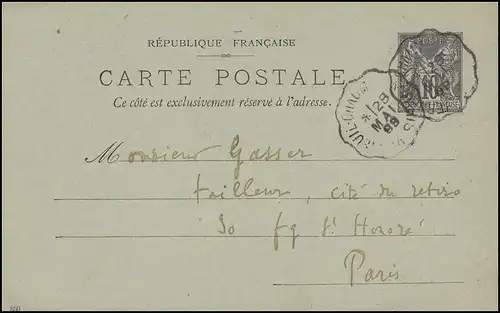 RÉPUBLIQUE FRANÇAISE
CARTE POSTALE
Ce côté est exclusivement réservé à l'adresse.
10
28
MAI
99
Monsieur Gasser
tailleur, cité du retiro
30 fg St Honoré
Paris